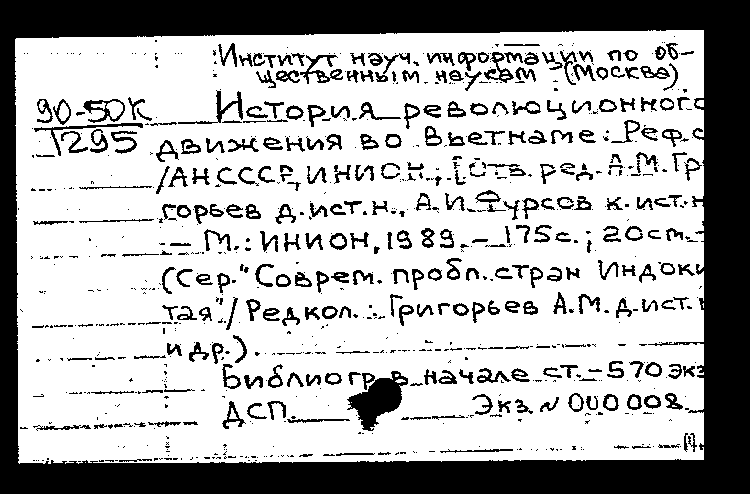 Институт науч. информации по об-
щественным наукам (Москва)
90-50К
1295
История революционного
движения во Вьетнаме: Реф. с
/АН СССР, ИНИОН; [Отв. ред. А.М. Гри
горьев д.ист.н., А.И. Фурсов к. ист. н
— М.: ИНИОН, 1989. — 175с.; 20см. —
(Сер. "Соврем. пробл. стран Индоки
тая"/Редкол.: Григорьев А.М. д. ист. н
и др.).
Библиогр в начале ст. — 570 экз
ДСП. Экз № 000008